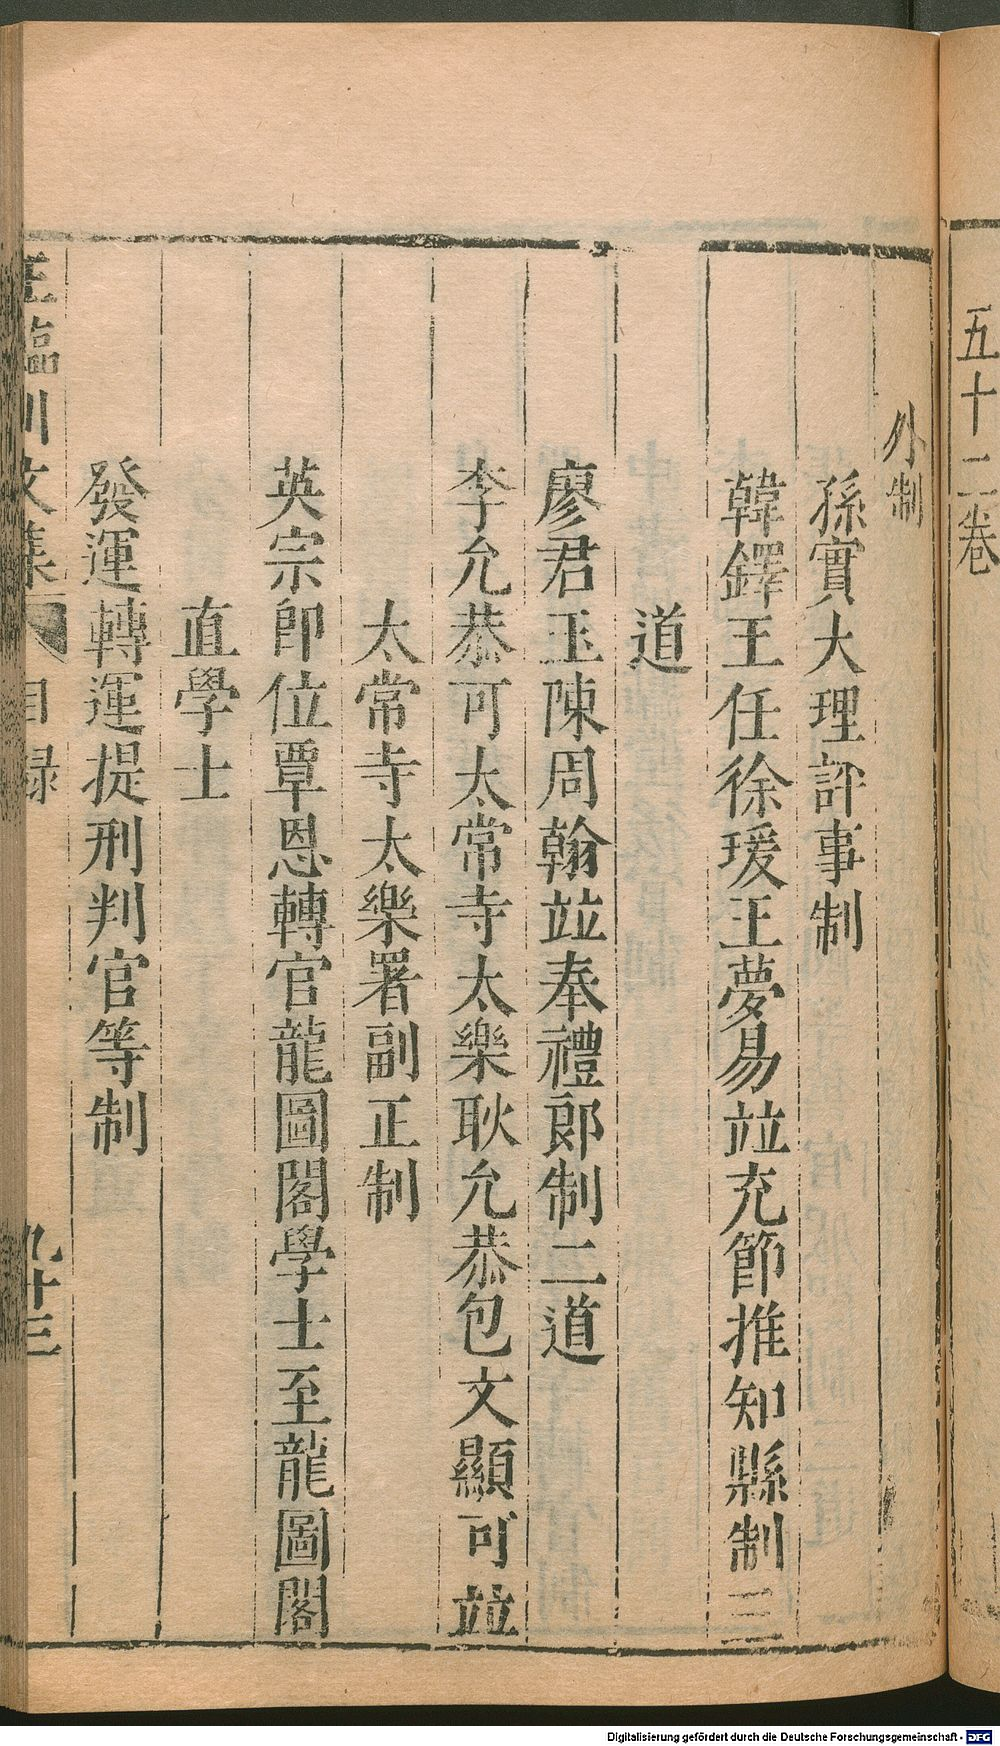 五十二卷
外制
孫實大理評事制
韓鐸王任徐瑗王夢易竝充節推知縣制三
道
廖君玉陳周翰竝奉禮郎制二道
李允恭可太常寺太樂耿允恭包文顯可竝
太常寺太樂署副正制
英宗卽位覃恩轉官龍圖閣學士至龍圖閣
直學士
發運轉運提刑判官等制
王臨川文集 目錄 九十三
Digitalisierung gefördert durch die Deutsche Forschungsgemeinschaft - DFG